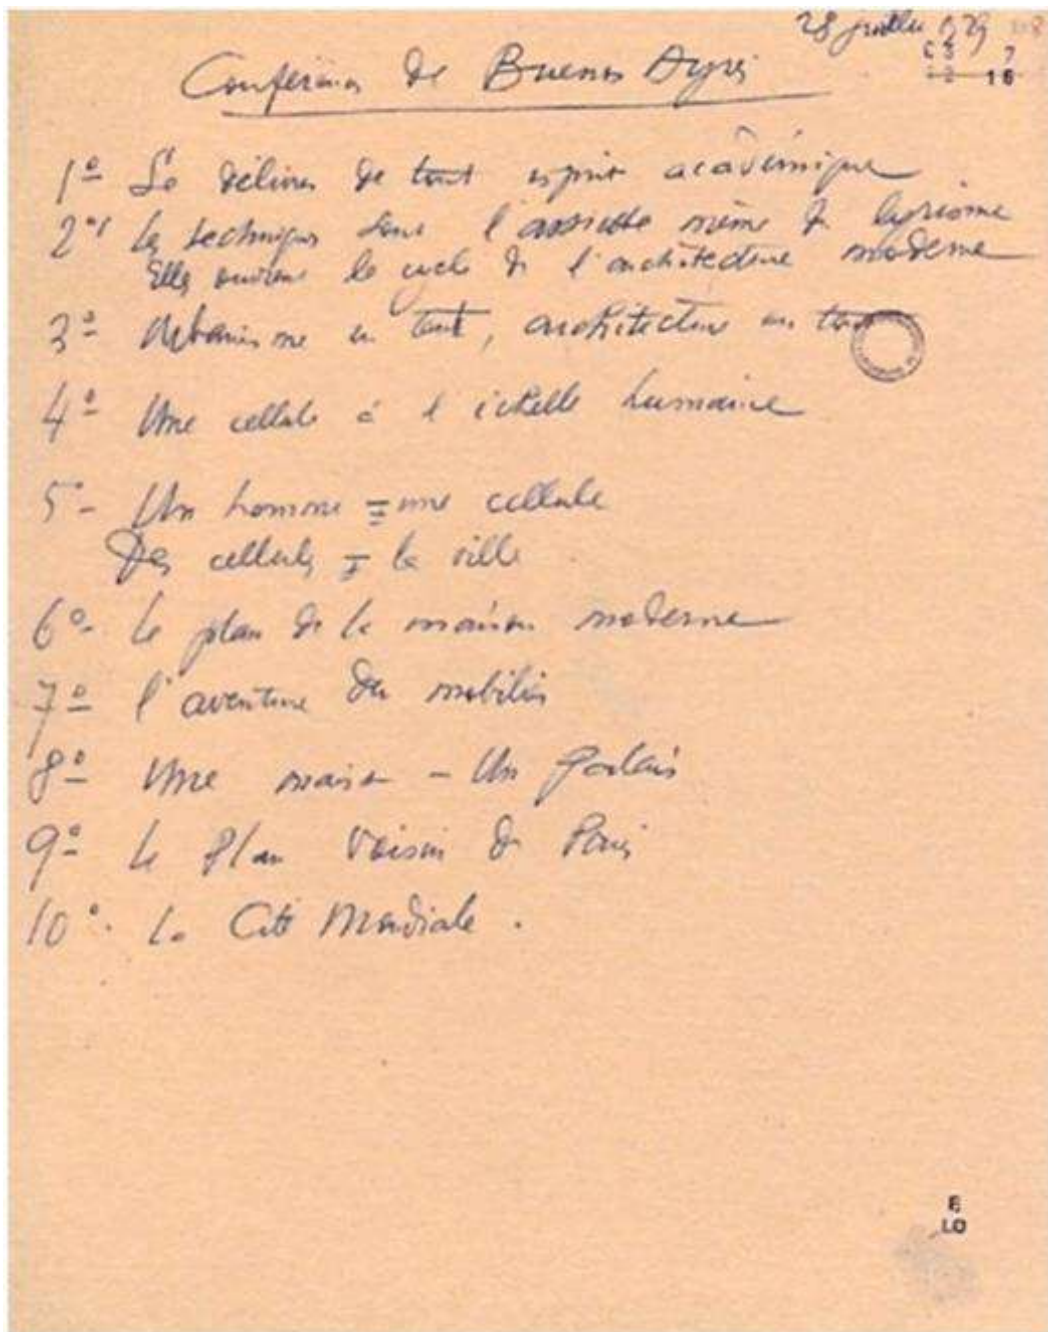 28 juillet 1929
C 3 7
16
Conférences de Buenos Ayres
1º Se délivrer de tout esprit académique
2º Les techniques sont l'assiette même du lyrisme
Elles ouvrent le cycle de l'architecture moderne
3º Urbanisme en tout, architecture en tout
4º Une cellule à l'échelle humaine
5- Un homme = une cellule
Des cellules = la ville
6º- Le plan de la maison moderne
7º l'aventure du mobilier
8º Une maison - Un Palais
9º Le Plan Voisin de Paris
10º. La Cité Mondiale.
LO